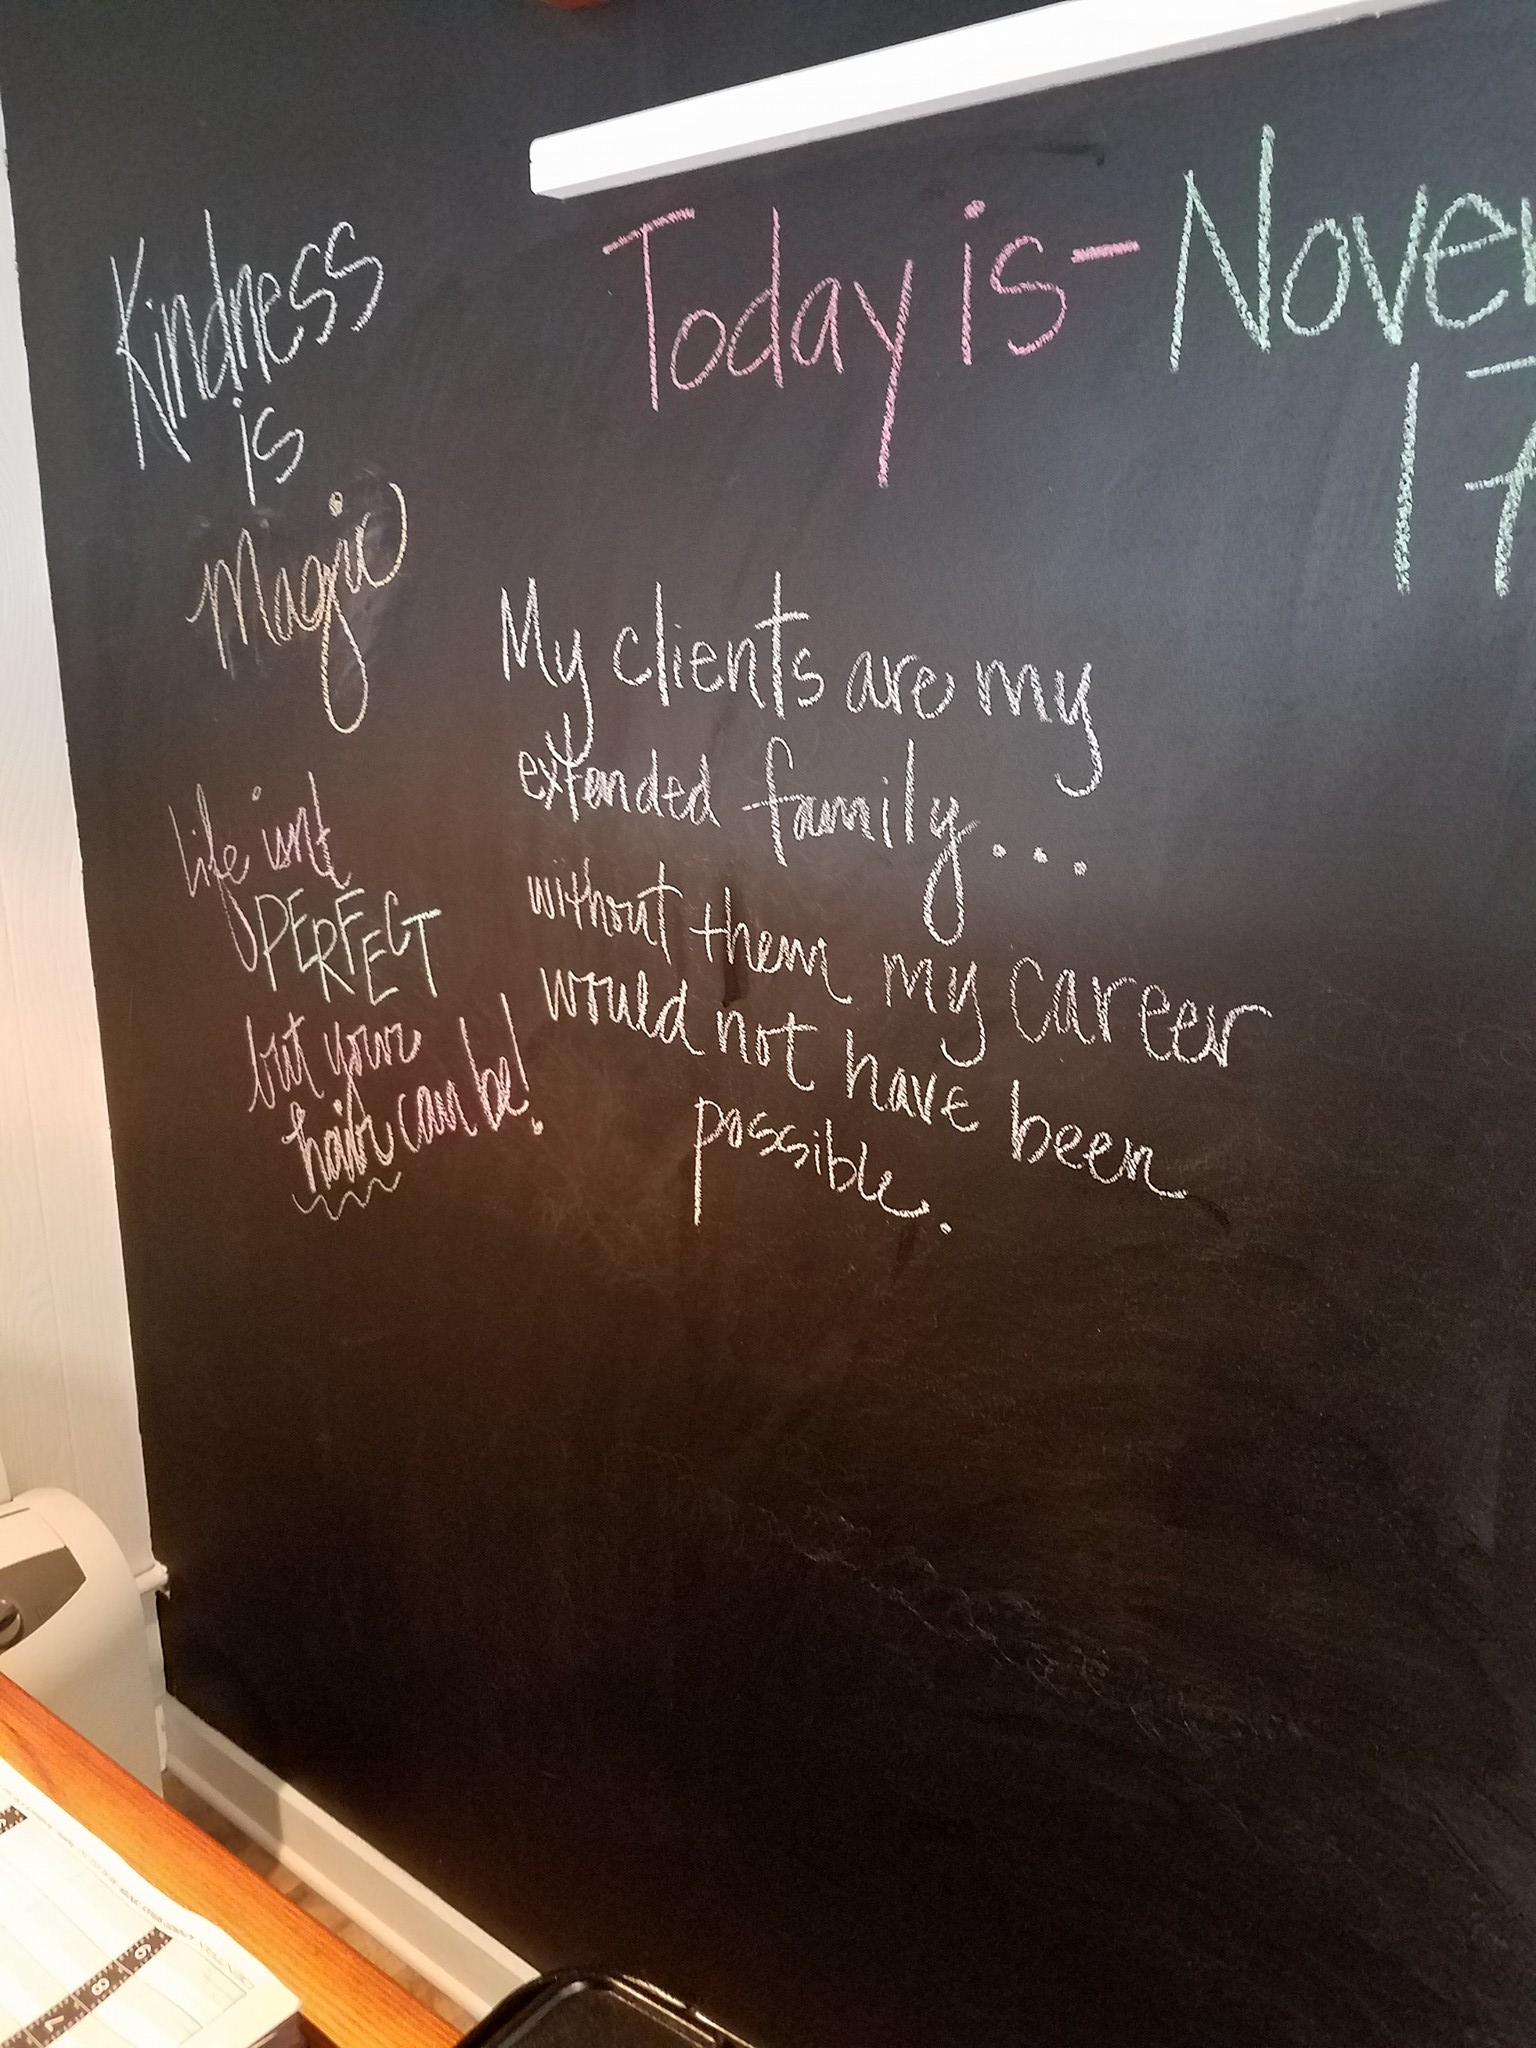 Kindness
is
Magic
Today is - Novem
17
My clients are my
extended family...
without them my career
would not have been
possible.
life isnt
PERFECT
but your
hair can be!
6
8
7